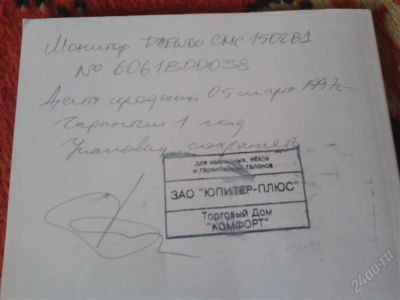 Монитор DAEWOO CMC 1502B1
№ 6061B00038
Дата продажи 05 марта 1997г
Гарантия 1 год
Упаковку сохранять
для накладных, чеков
и гарантийных талонов
ЗАО "ЮПИТЕР-ПЛЮС"
Торговый Дом
"КОМФОРТ"
24au.ru